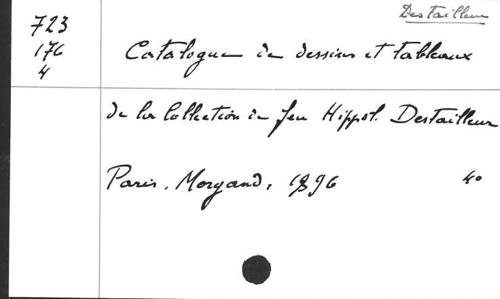 Destailleur
723
176
4
Catalogue de dessins et tableaux
de la Collection de feu Hippol. Destailleur
Paris, Morgand, 1896 4º